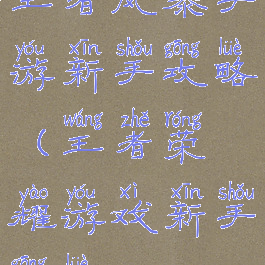 王者风暴手
yóu xīn shǒu gōng lüè
游新手攻略
wáng zhě róng
(王者荣
yào yóu xì xīn shǒu
耀游戏新手
gōng lüè